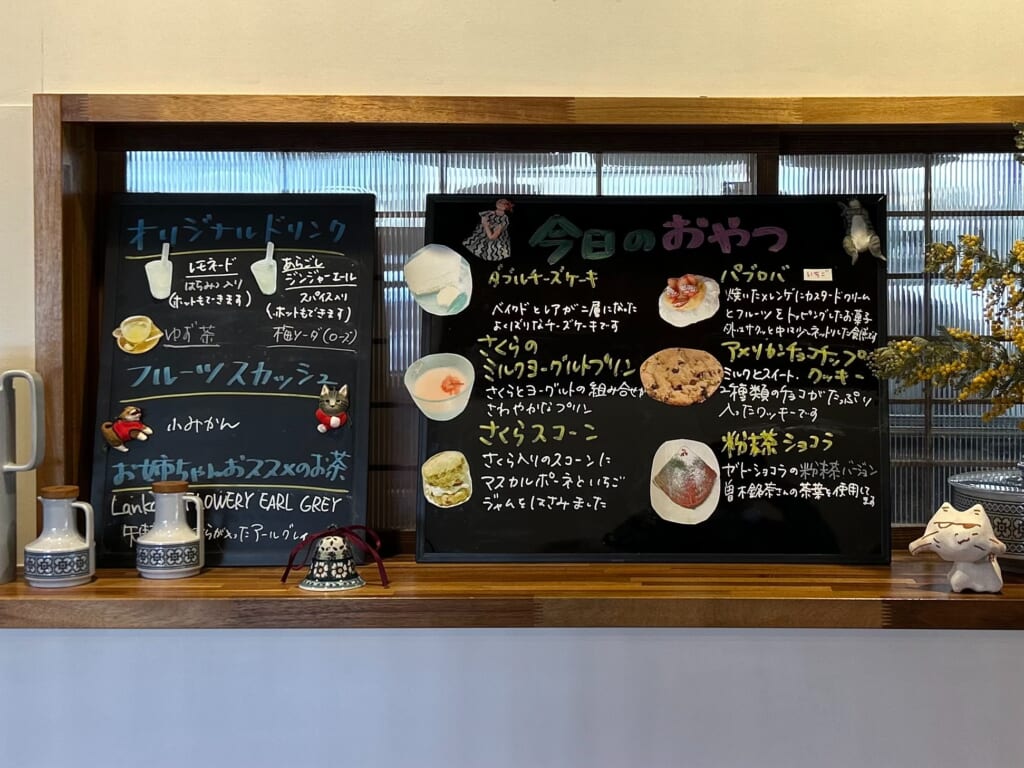 オリジナルドリンク
レモネード
はちみつ入り
(ホットもできます)
あらごし
ジンジャーエール
スパイス入り
(ホットもできます)
ゆず茶
梅ソーダ(ロープ)
フルーツスカッシュ
小みかん
お姉ちゃんおススメのお茶
Lanka FLOWERY EARL GREY
らが入ったアールグレイ
今日のおやつ
ダブルチーズケーキ
ベイクドとレアが二層になった
よくばりなチーズケーキです
さくらの
ミルクヨーグルトプリン
さくらとヨーグルトの組み合せが
さわやかなプリン
さくらスコーン
さくら入りのスコーンに
マスカルポーネといちご
ジャムをはさみました
パブロバ
いちご
焼いたメレンゲにカスタードクリーム
とフルーツをトッピングしたお菓子
外はサクッと中は少しネットリした食感です
アメリカンチョコチップ
クッキー
ミルクとスイート、
2種類のチョコがたっぷり
入ったクッキーです
粉末茶ショコラ
ガトーショコラの粉末茶バージョン
曽木銘茶さんの茶葉を使用してます